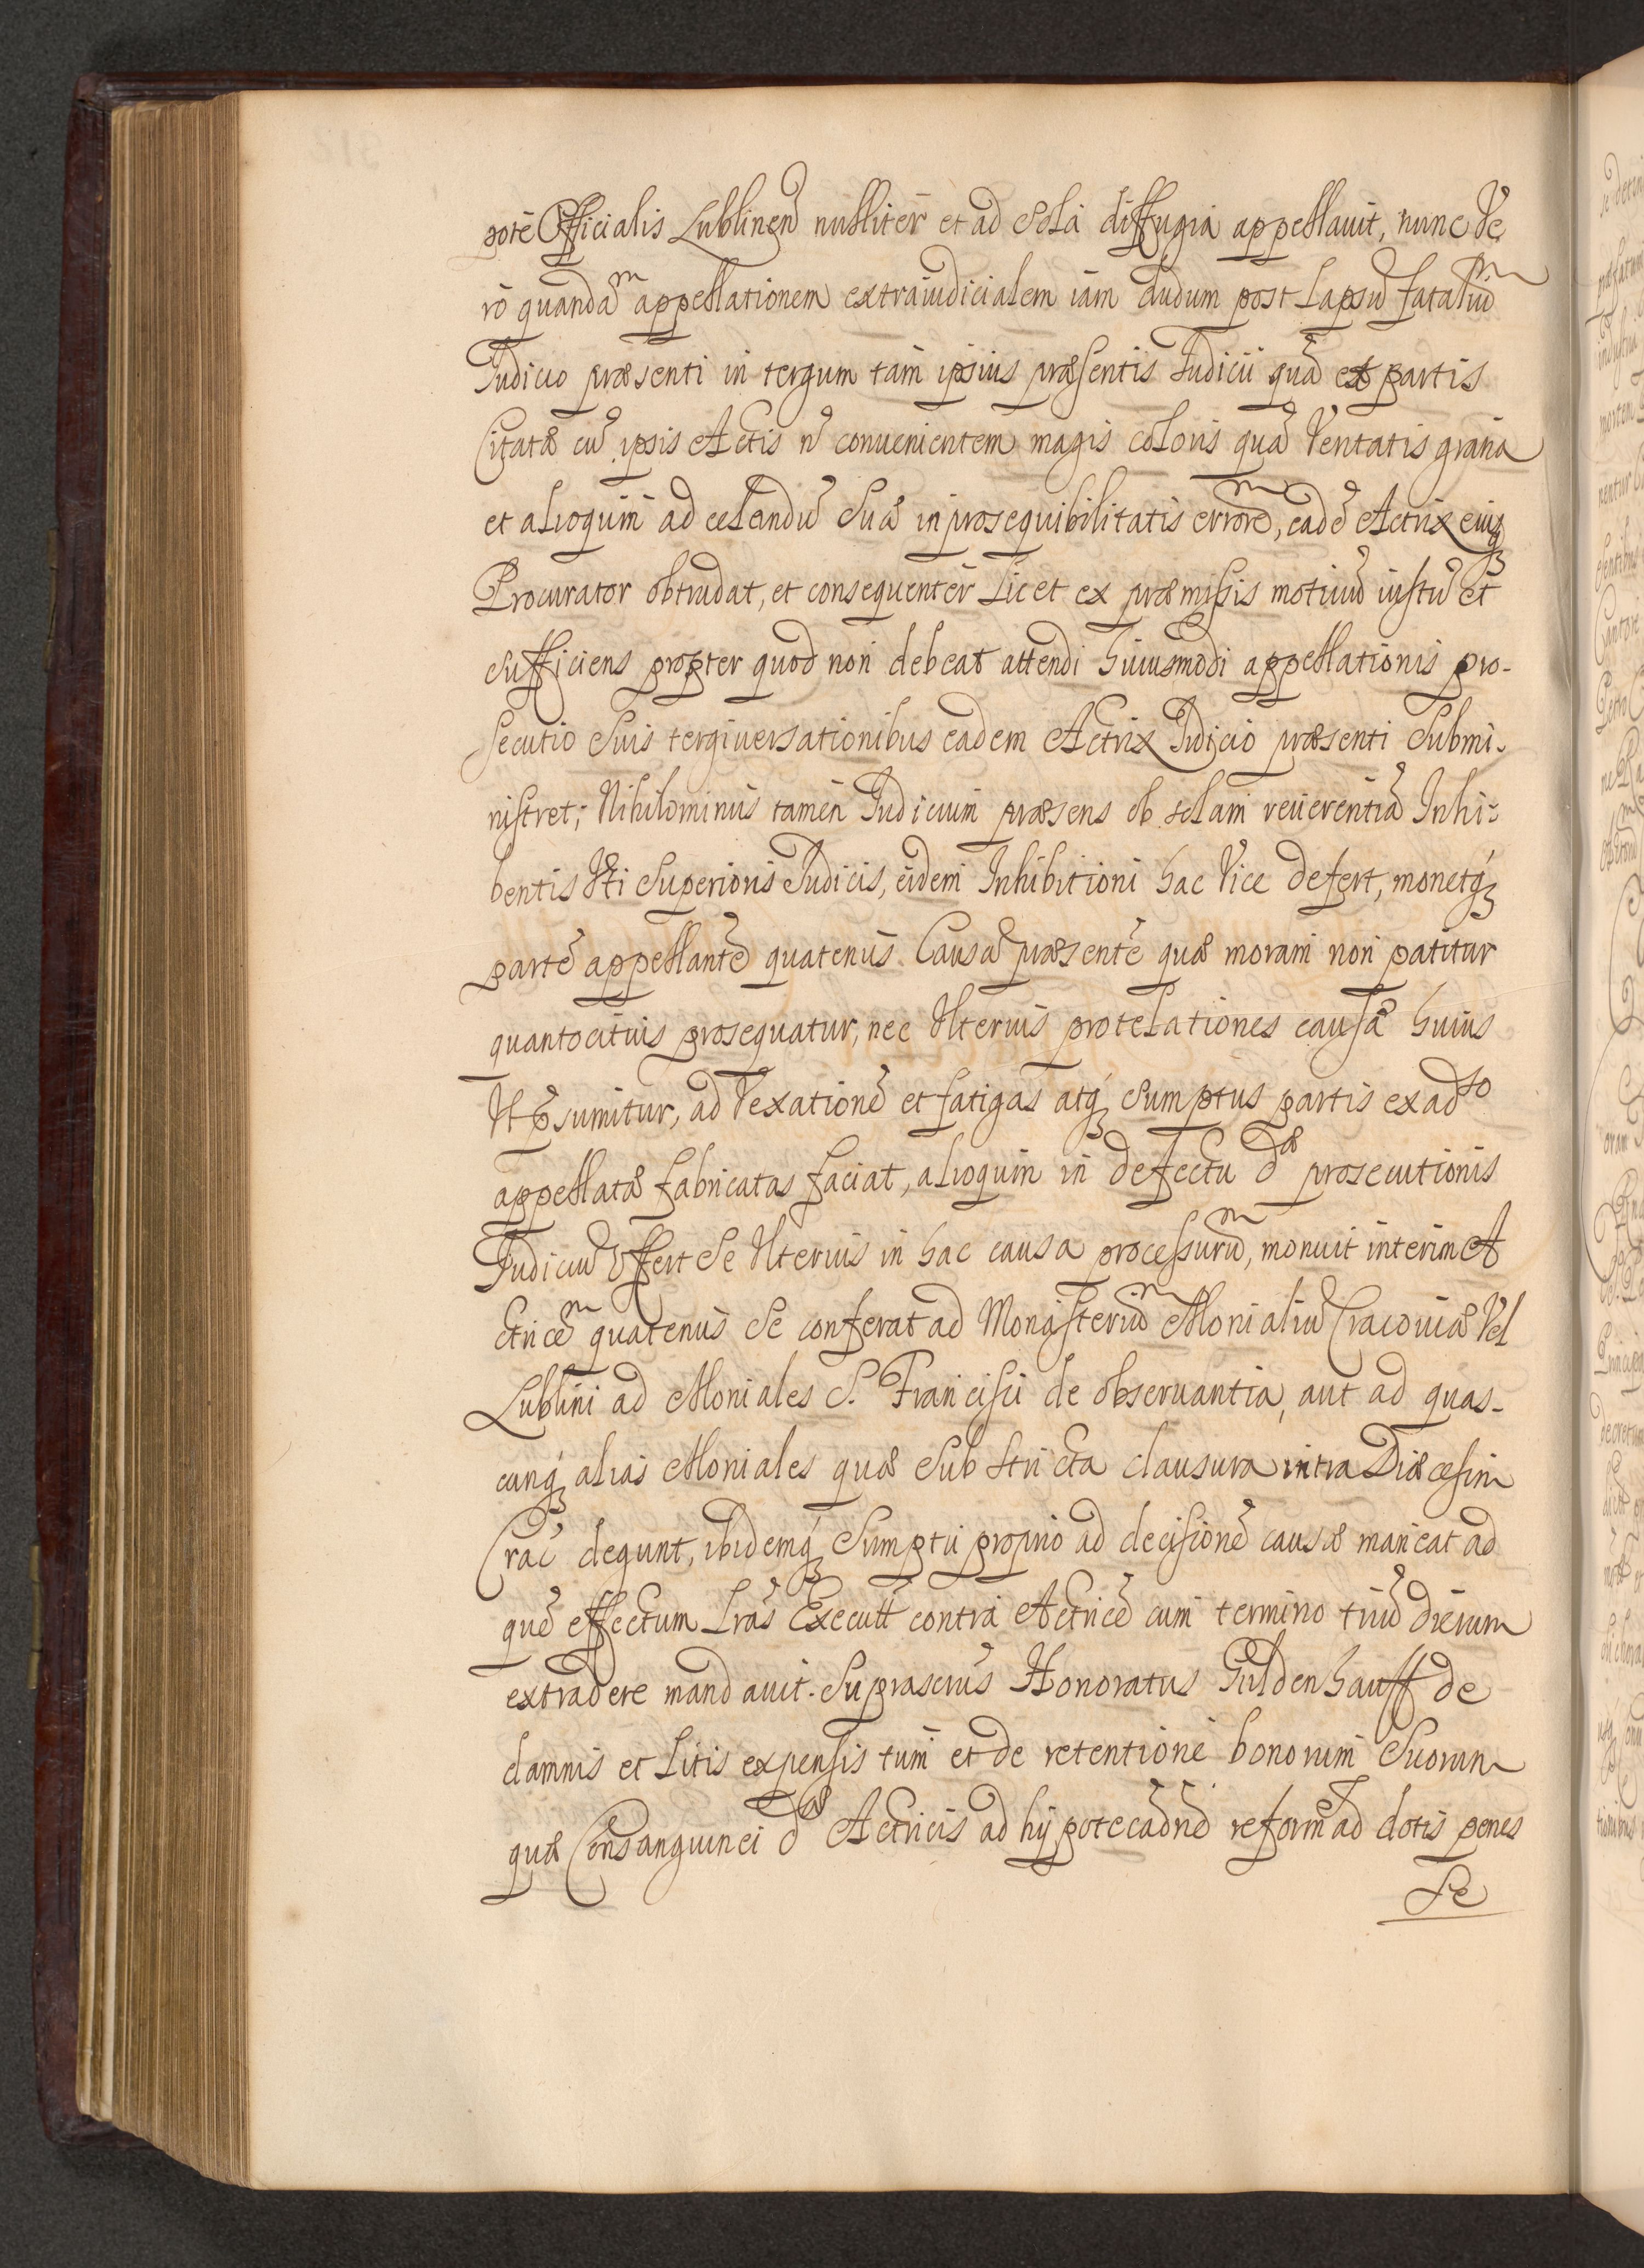 pote Officialis Lublinen̄ nulliter et ad sola diffugia appellauit, nunc Ve
rō quandam̄ appellationem extraiudicialem iam dudum post Lapsū fataliūm
Iudicio præsenti in tergum tam ipsius præsentis Iudicii quā et partis
Citatæ cū ipsis Actis n̄ conuenientem magis coloris quā Veritatis gratia
et alioquin ad celandū Suæ inprosequibilitatis errorē, eadē Actrix eiusq̨
Procurator obtrudat, et consequenter Licet ex præmissis motiuū iustū et
Sufficiens propter quod non debeat attendi huiusmodi appellationis pro-
secutio Suis tergiuersationibus eadem Actrix Iudicio præsenti Submi-
nistret; Nihilominus tamen Iudicium præsens ob solam reuerentiā Inhi-
bentis Vti Superioris Iudicis, eidem Inhibitioni hac Vice defert, monetq̨
partē appellantē quatenus Causā præsentē quæ moram non patitur
quantocitius prosequatur, nec Vlterius protelationes causæ huius
Vt præsumitur, ad Vexationē et fatigas atq̨ Sumptus partis ex adso
appellatæ fabricatas faciat, alioquin in defectu dæ prosecutionis
Iudiciū offert Se Vlterius in hac causa processurū, monuit interim A
ctricem̄ quatenus Se conferat ad Monasteriū Monialiū Cracouiæ Vel
Lublini ad Moniales S. Francisci de obseruantia, aut ad quas-
cunq̨ alias Moniales quæ Sub stricta clausura intra Diæcesim
Crac̄ degunt, ibidemq̨ Sumptu proprio ad decisionē causæ maneat ad
quē effectum Lras̄ Executt contra Actricē cum termino triū dierum
extradere mandauit. Suprascrus̄ Honoratus Guldenhauff de
damnis et Litis expensis tum et de retentione bonorum Suorum
quæ Consanguinei dæ Actricis ad hypotecādnē reformād dotis penes
Se